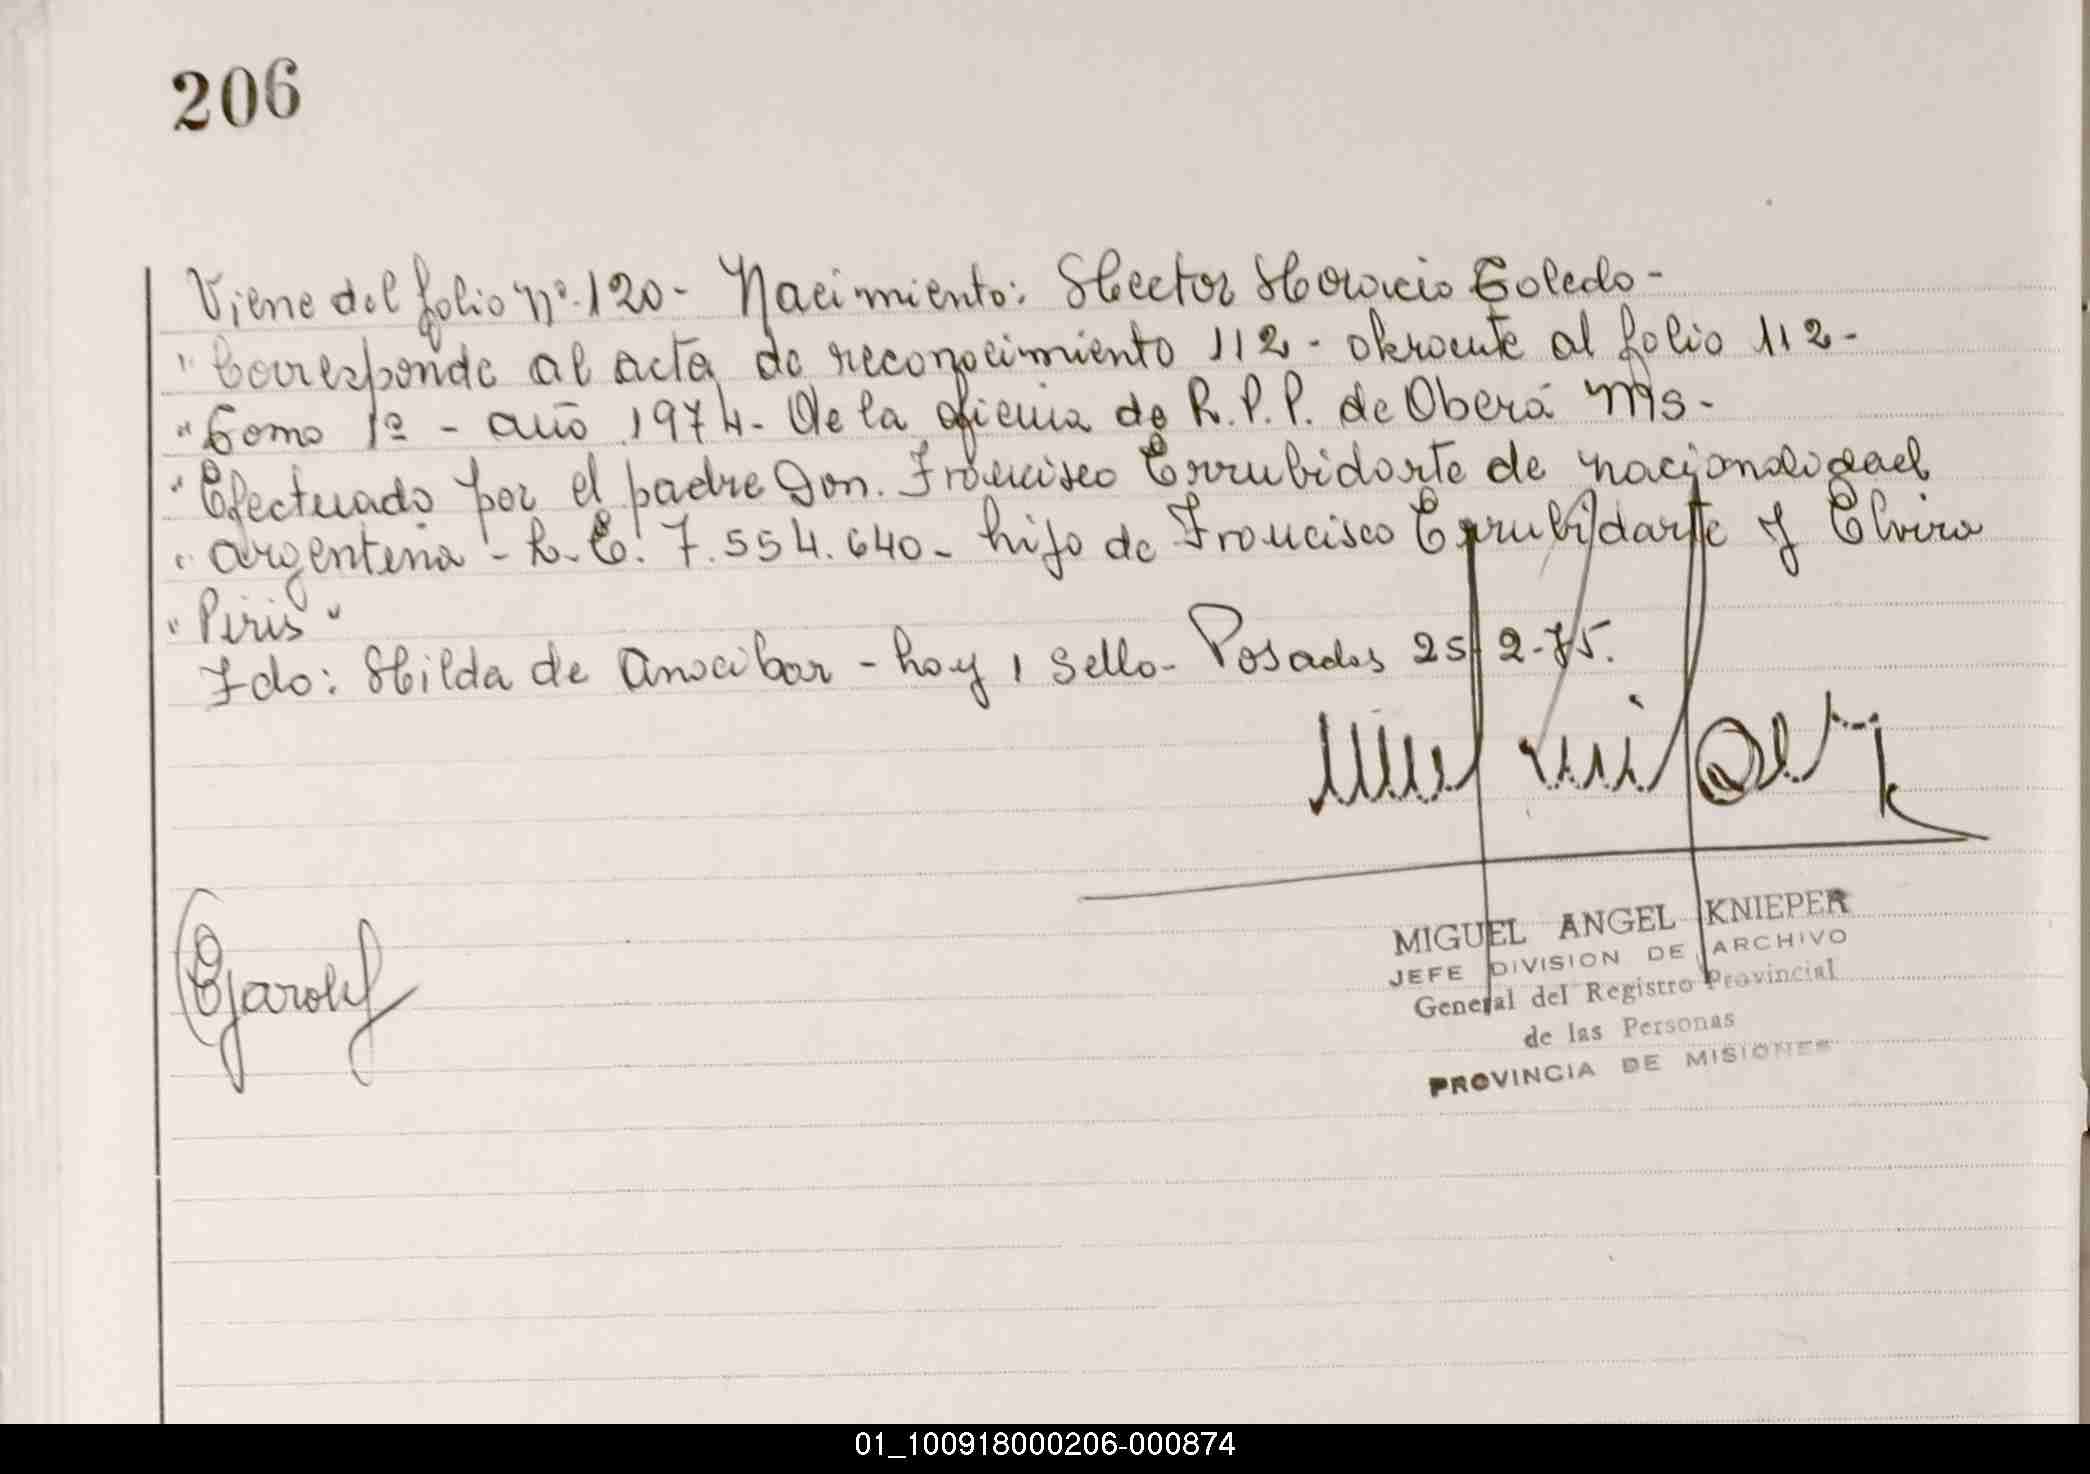 206
Viene del folio Nº.120- Nacimiento: Hector Horacio Toledo-
"Corresponde al acta de reconocimiento 112- obrante al folio 112-
"Tomo 1º - año 1974- De la oficina de R.P.P. de Oberá Ms-
"Efectuado por el padre Don. Francisco Errubidarte de nacionalidad
"argentina - L.E. 7.554.640- hijo de Francisco Errubidarte y Elvira
"Piris"
Fdo: Hilda de Anocibar - hay 1 sello- Posadas 25-2-75.
MIGUEL ANGEL KNIEPER
JEFE DIVISION DE ARCHIVO
General del Registro Provincial
de las Personas
PROVINCIA DE MISIONES
01_100918000206-000874